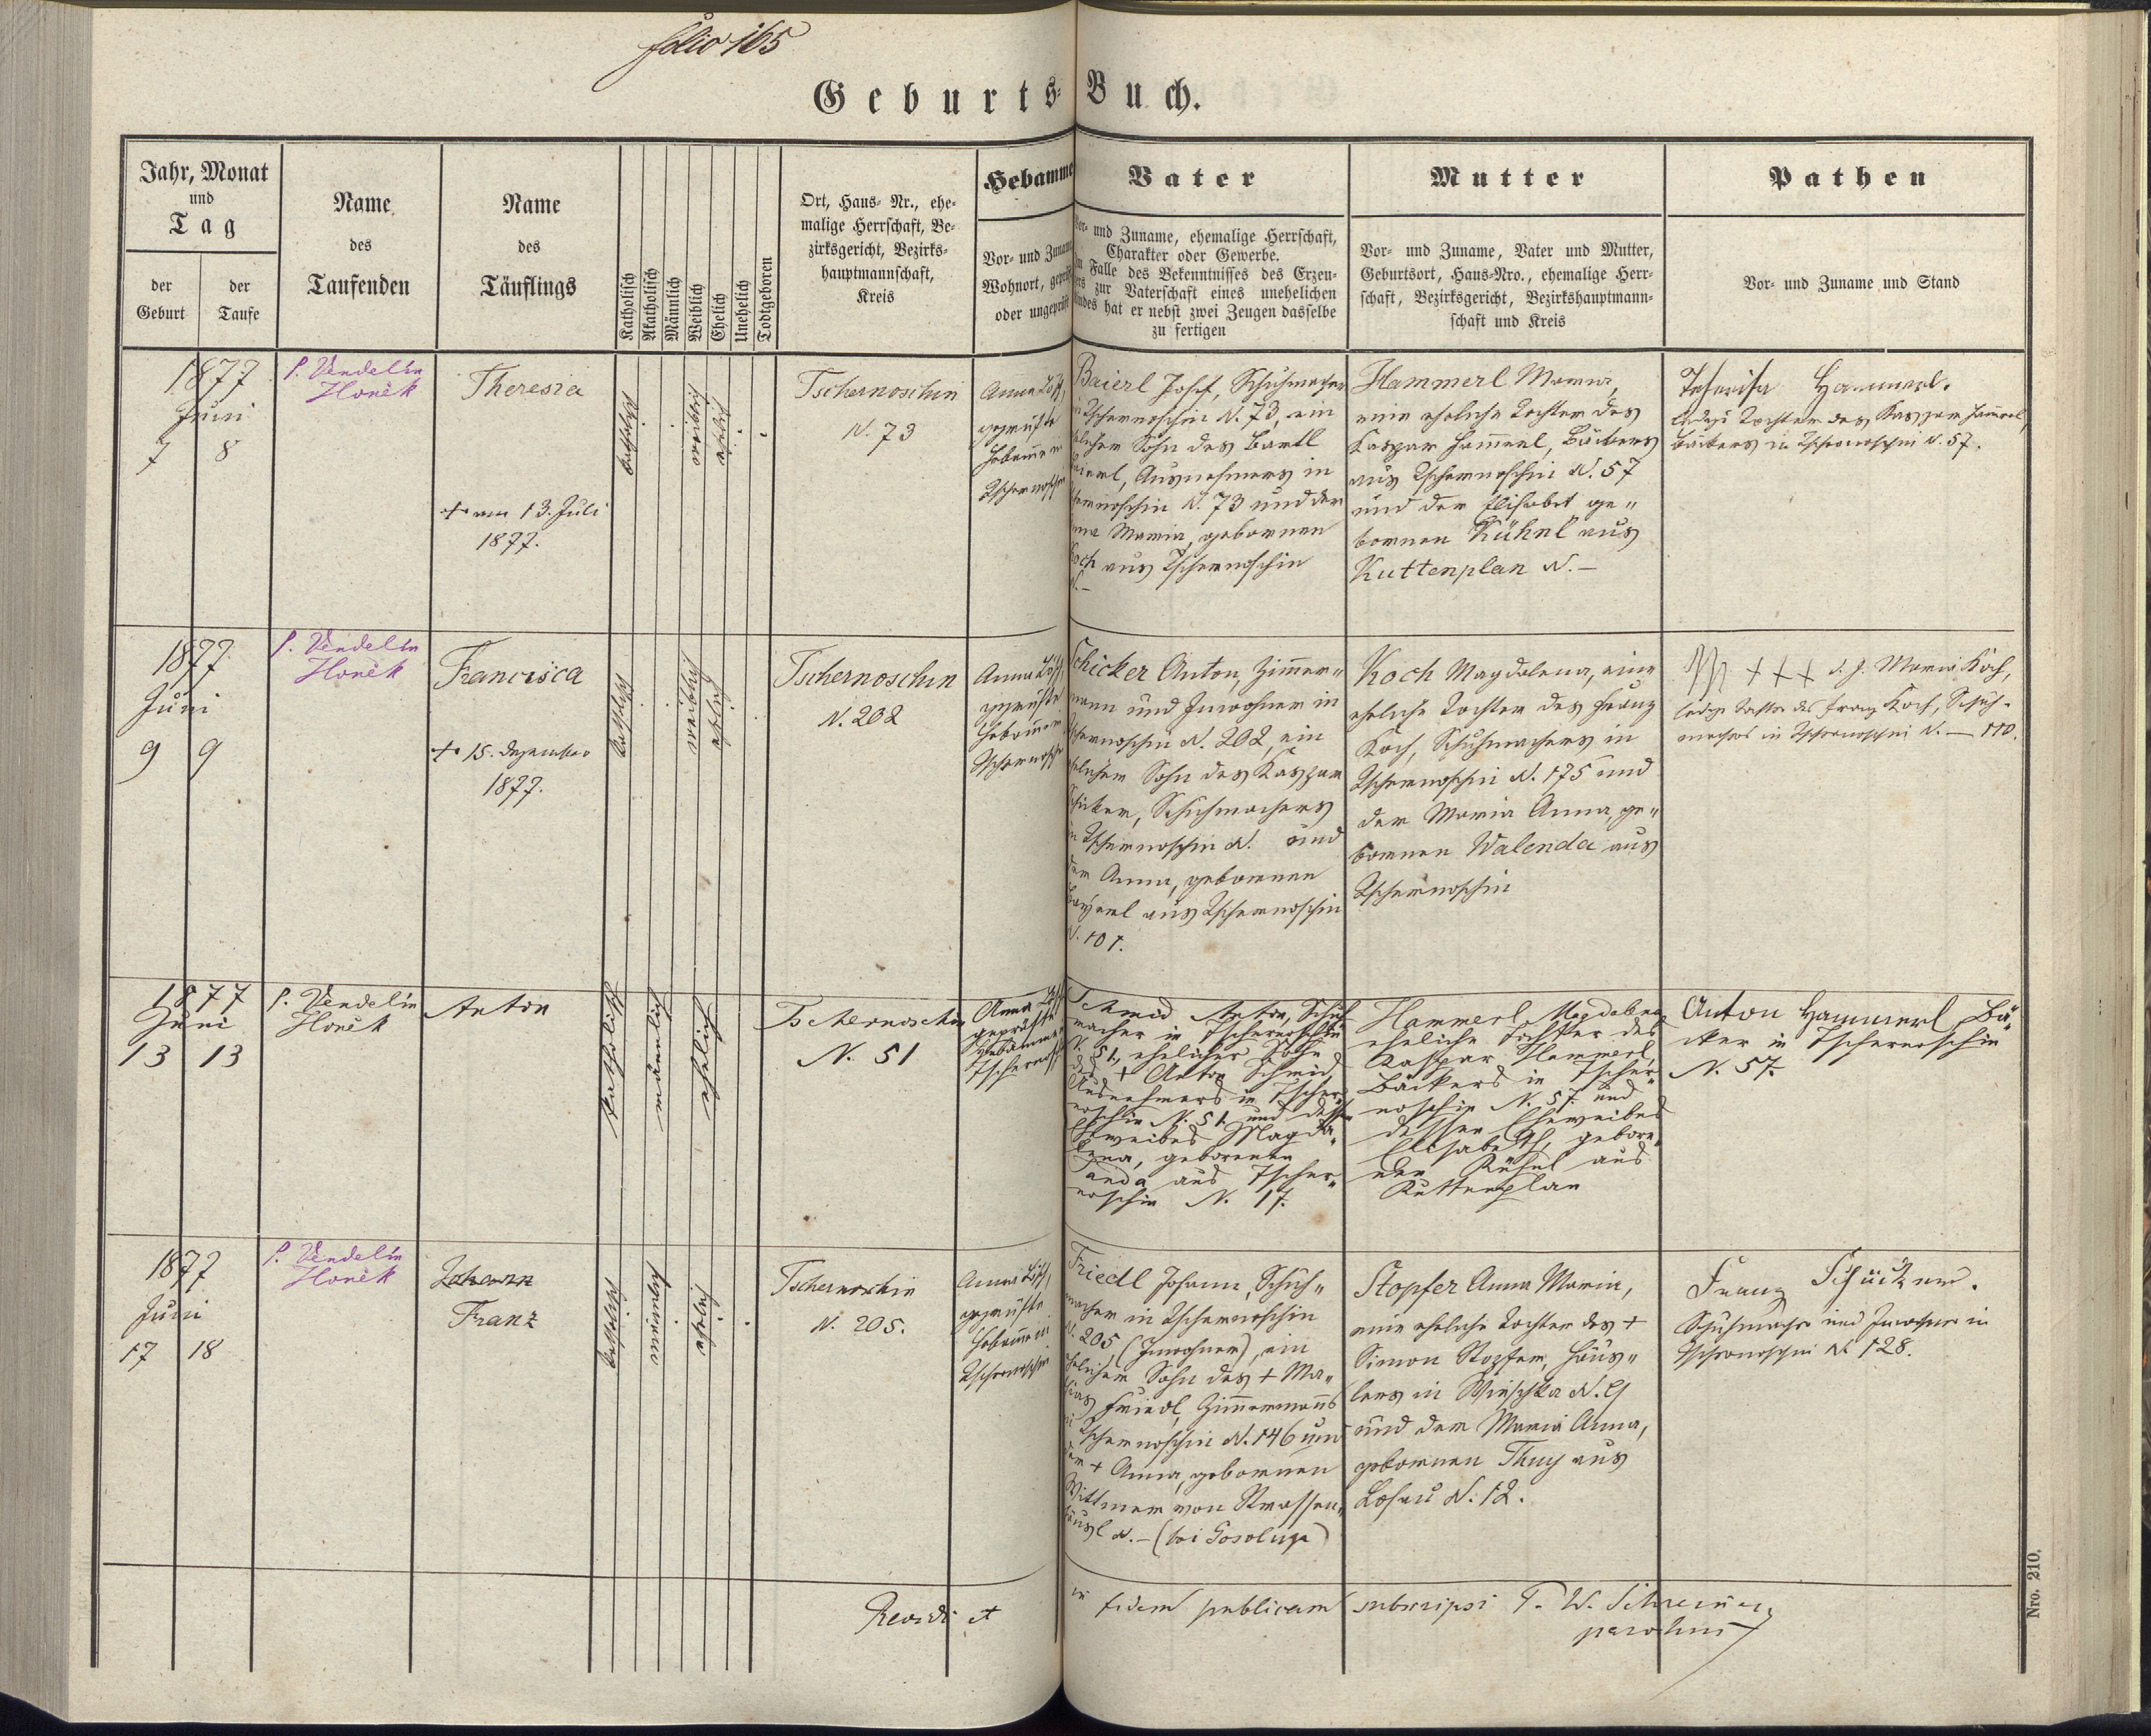 folio 165
Geburts-Buch.
Jahr, Monat
und
Tag
der
Geburt
der
Taufe
Name
des
Taufenden
Name
des
Täuflings
Katholisch
Akatholisch
Männlich
Weiblich
Ehelich
Unehelich
Todtgeboren
Ort, Haus- Nr., ehe-
malige Herrschaft, Be-
zirksgericht, Bezirks-
hauptmannschaft,
Kreis
Hebamme
Vor- und Zuname
Wohnort, geprüft
oder ungeprüft
Vater
Vor- und Zuname, ehemalige Herrschaft,
Charakter oder Gewerbe.
Im Falle des Bekenntnisses des Erzeu-
gers zur Vaterschaft eines unehelichen
Kindes hat er nebst zwei Zeugen dasselbe
zu fertigen
Mutter
Vor- und Zuname, Vater und Mutter,
Geburtsort, Haus-Nro., ehemalige Herr-
schaft, Bezirksgericht, Bezirkshauptmann-
schaft und Kreis
Pathen
Vor- und Zuname und Stand
1877
Juni
7 8
P. Vendelín
Honěk
Theresia
+ am 13. Juli
1877.
katholisch
weiblich
ehelich
Tschernoschin
N. 73
Anna
geprüfte
Hebamme
Tschernoschin
Baierl Josef, Schuhmacher
in Tschernoschin N. 73, ein
ehelicher Sohn des Bartl
Baierl, Ausnehmers in
Tschernoschin N. 73 und der
Anna Maria, gebornen
Koch aus Tschernoschin
N. –
Hammerl Maria,
eine eheliche Tochter des
Kaspar Hammerl, Bäckers
aus Tschernoschin N. 57
und der Elisabet ge„
bornen Kühnl aus
Kuttenplan N. –
Theresia Hammerl.
ledige Tochter des Kaspar Hammerl,
Bäckers in Tschernoschin N. 57.
1877
Juni
9 9
P. Vendelín
Honěk
Francisca
+ 15. Dezember
1877.
katholisch
weiblich
ehelich
Tschernoschin
N. 202
Anna
geprüfte
Hebamme in
Tschernoschin
Schicker Anton, Zimmer„
mann und Inwohner in
Tschernoschin N. 202, ein
ehelicher Sohn des Kaspar
Schicker, Schuhmachers
in Tschernoschin N. und
der Anna, gebornen
Bayerl aus Tschernoschin
N. 101.
Koch Magdalena, eine
eheliche Tochter des Franz
Koch, Schuhmachers in
Tschernoschin N. 175 und
der Maria Anna, ge„
bornen Walenda aus
Tschernoschin
+++ d. J. Maria Koch,
ledige Tochter des Franz Koch, Schuh-
machers in Tschernoschin N. – 110.
1877
Juni
13 13
P. Vendelín
Honěk
Anton
katholisch
männlich
ehelich
Tschernoschin
N. 51
Anna
geprüfte
Hebamme
Tschernoschin
Schmid Anton, Schuh
macher in Tschernoschin
N. 51, ehelicher Sohn
des + Anton Schmid
Ausnehmers in Tscher„
noschin N. 51 und dessen
Eheweibes Magda„
lena, geborenen
Janda aus Tscher„
noschin N. 17.
Hammerl Magdalena
eheliche Tochter des
Kaspar Hammerl,
Bäckers in Tscher„
noschin N. 57 und
dessen Eheweibes
Elisabeth, gebore„
nen Kühnl aus
Kuttenplan
Anton Hammerl, Bä„
cker in Tschernoschin
N. 57.
1877
Juni
17 18
P. Vendelín
Honěk
Johann
Franz
katholisch
männlich
ehelich
Tschernoschin
N. 205.
Anna
geprüfte
Hebamme in
Tschernoschin
Friedl Johann, Schuh„
macher in Tschernoschin
N. 205 (Inwohner), ein
ehelicher Sohn des + Ma„
thias Friedl, Zimmermanns
in Tschernoschin N. 146 und
der + Anna, gebornen
Wittmer von Strassen„
häusl N. – (bei Gosolup)
Stopfer Anna Maria,
eine eheliche Tochter des +
Simon Stopfer, Häus„
lers in Wieschka N. 9
und der Maria Anna,
gebornen Thuy aus
Lohau N. 12.
Franz Schicker.
Schuhmacher und Inwohner in
Tschernoschin N. 128.
Revidi et in fidem publicam subscripsi P. W. Schreiner
parochus
Nro. 210.